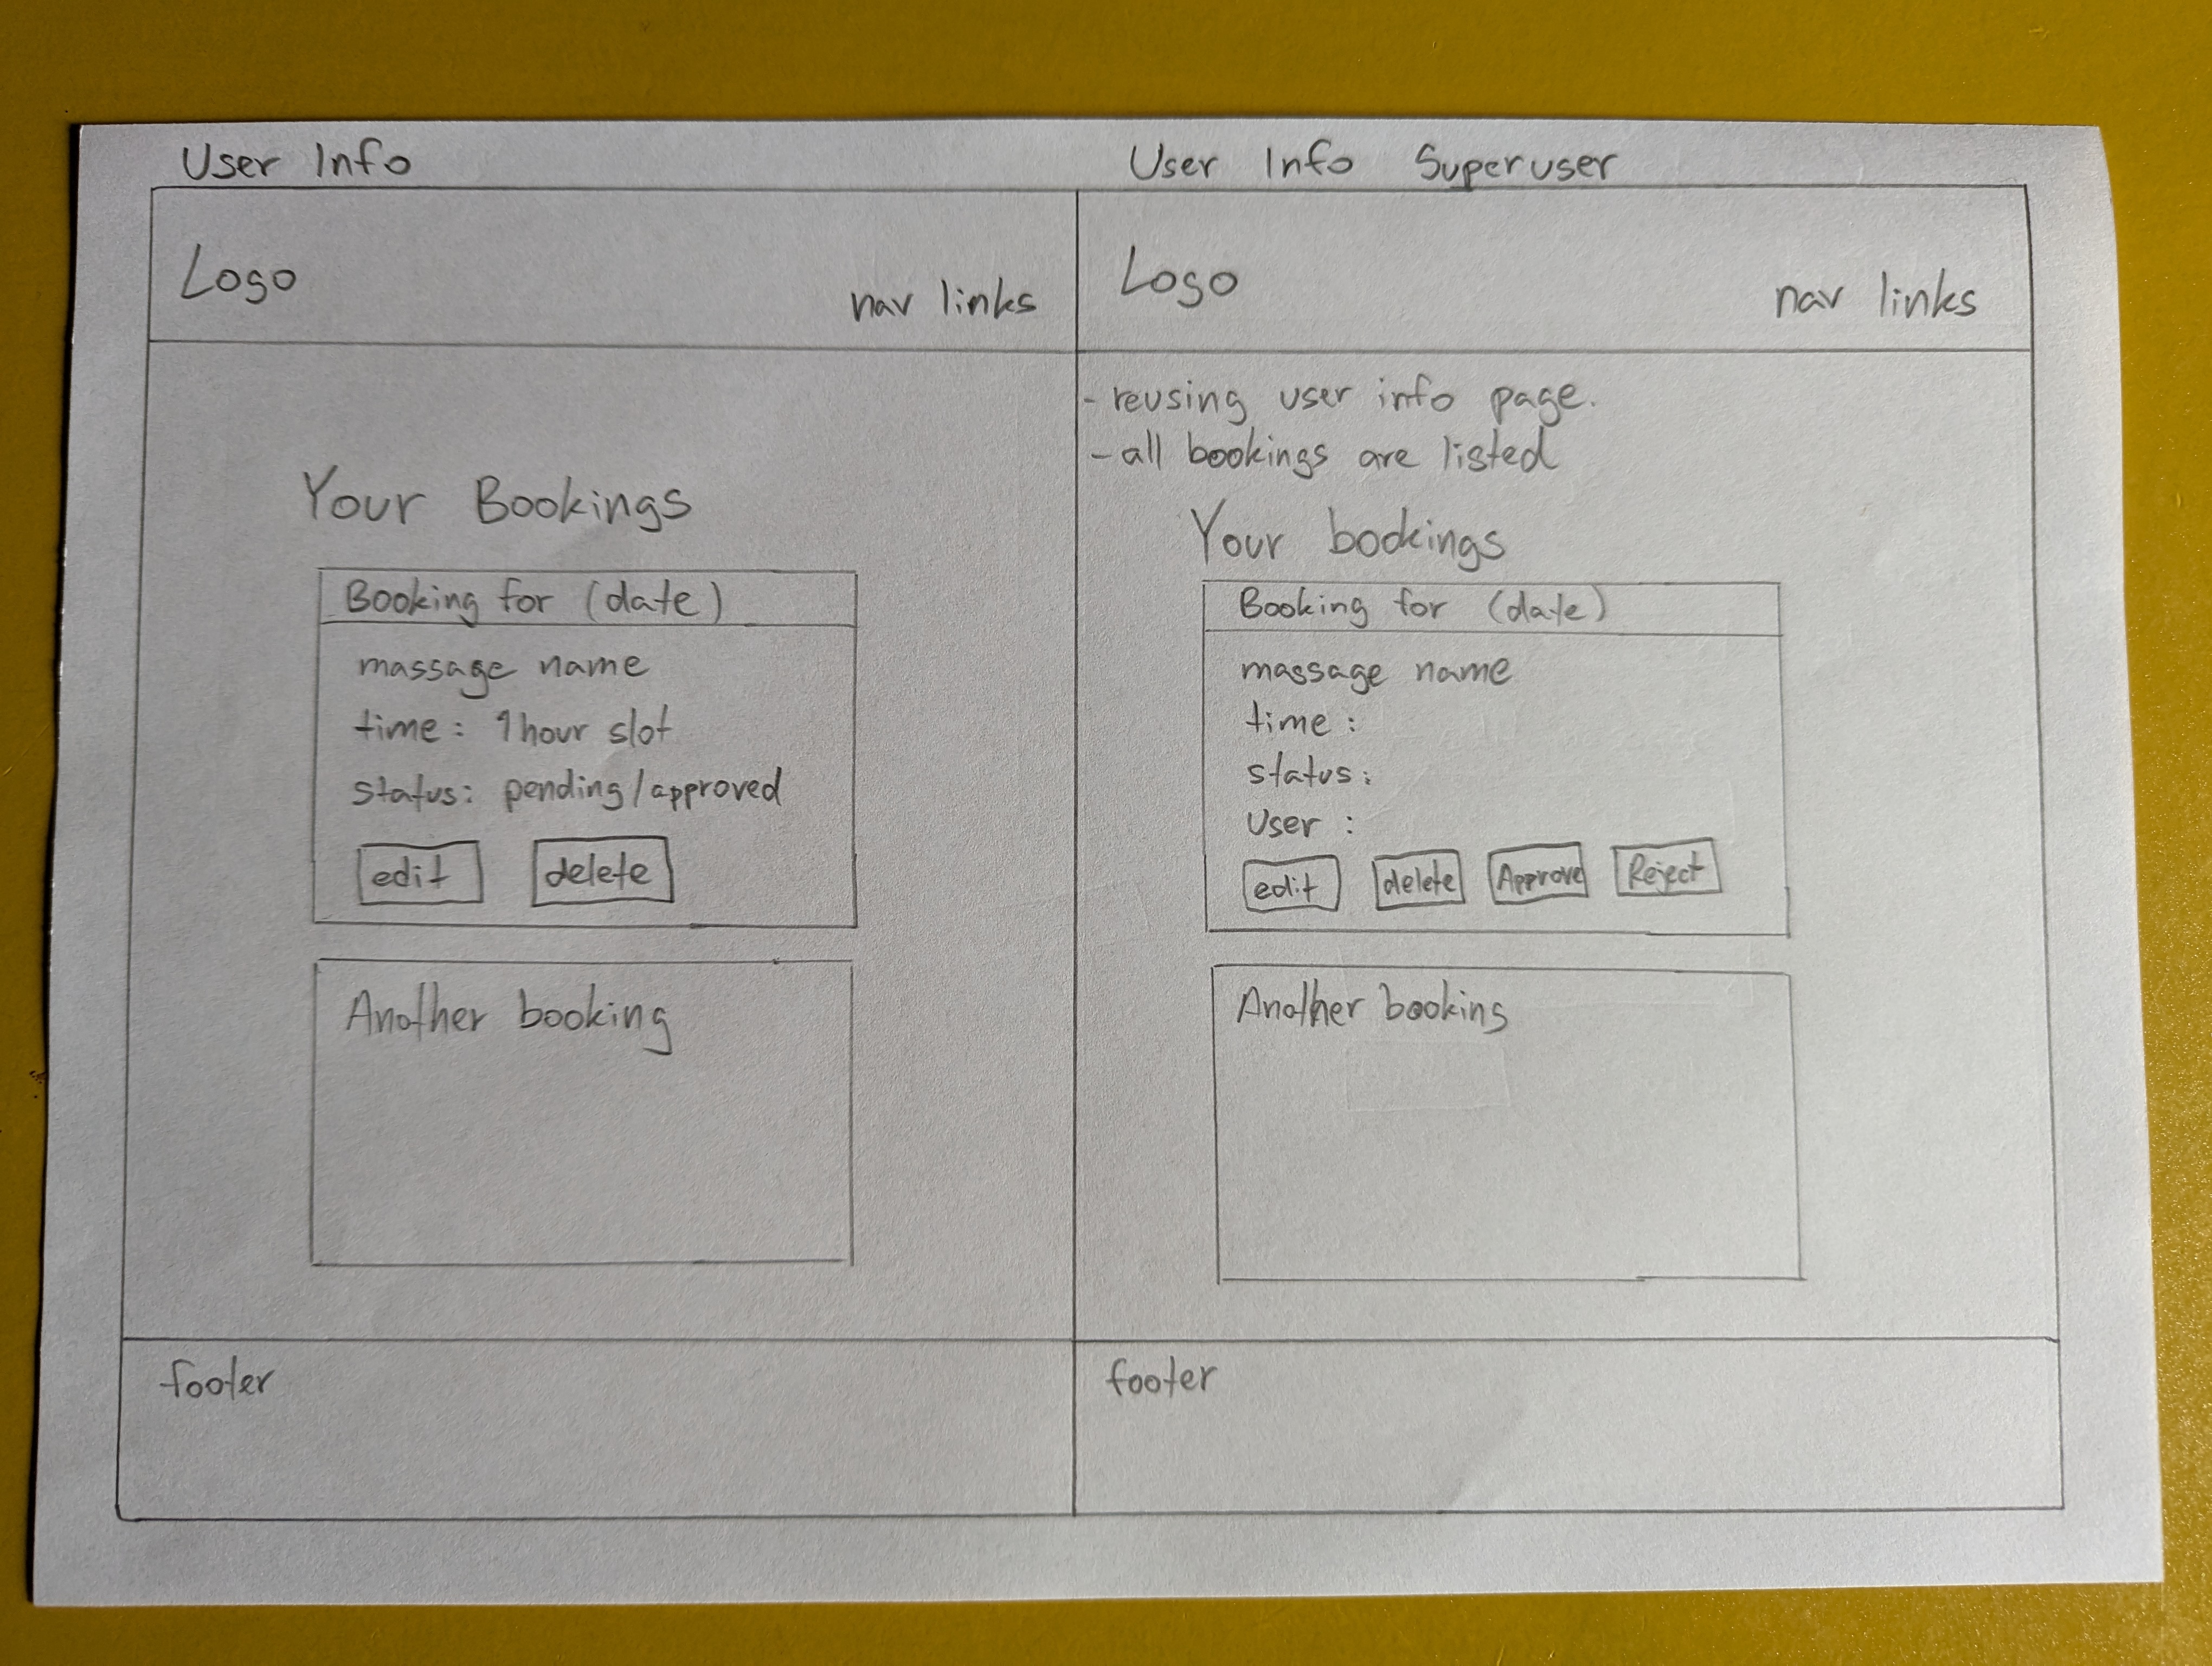 User Info
Logo
nav links
Your Bookings
Booking for (date)
massage name
time: 1hour slot
status: pending/approved
edit
delete
Another booking
footer
User Info Superuser
Logo
nav links
- reusing user info page.
- all bookings are listed
Your bookings
Booking for (date)
massage name
time:
status:
User:
edit
delete
Approve
Reject
Another booking
footer